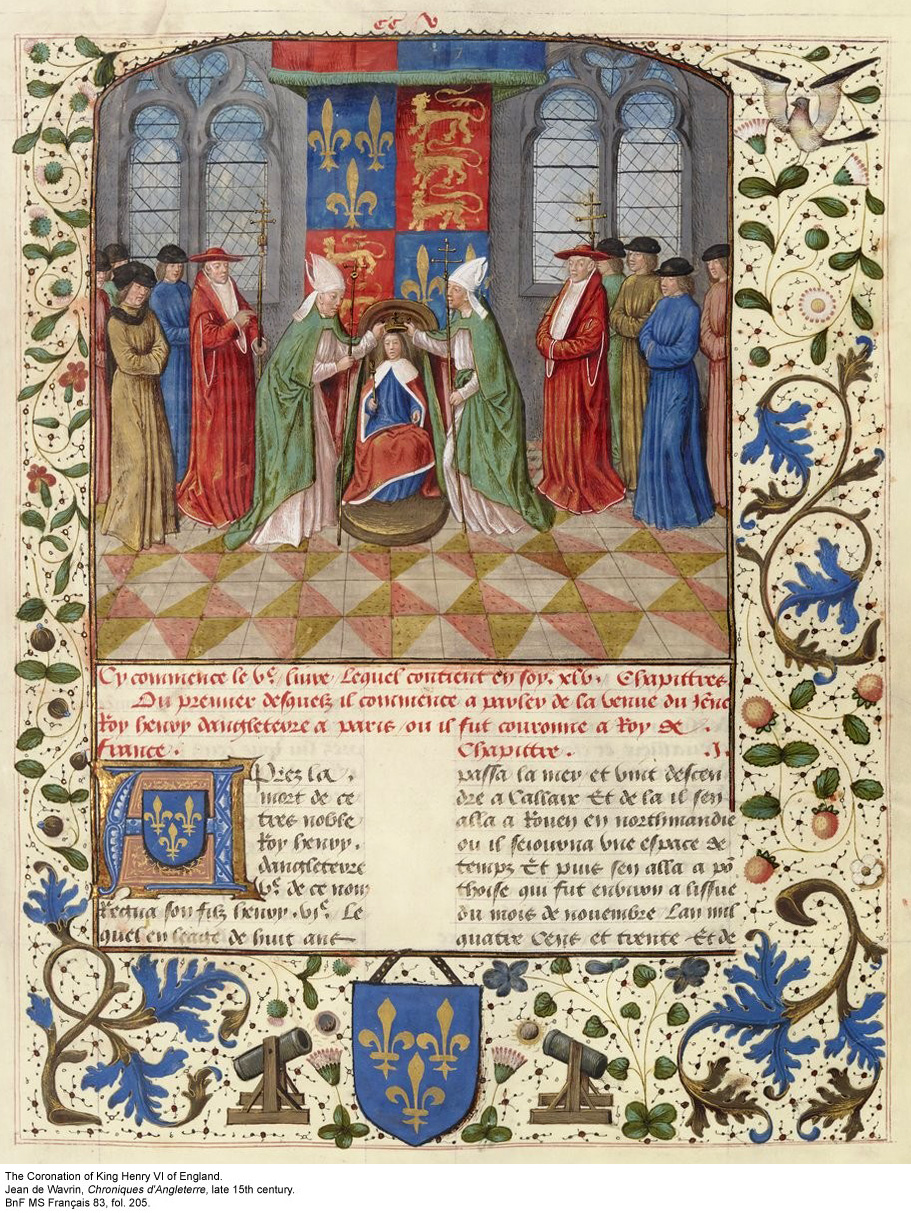 cc v
Cy commence le ve. liure. Lequel contient en soy. xlv. Chapittres
Ou premier desquelz il commence a parler de la venue du Jenē
Roy henry dangleterre a paris ou il fut couronne a Roy de .
France . Chapittre . I.
Aprez la .
mort de ce
tres noble
Roy henry.
dangleterre
ve. de ce nom
Regna son filz henry . vie. Le
quel en leage de huit ans
passa la mer et vint descen
dre a Callaix Et de la il sen
alla a Rouen en northmandie
ou il seiourna vne espace de
temps Et puis sen alla a pō
thoise qui fut enuiron a lissue
du mois de novembre Lan mil
quatre Cens et trente Et de
The Coronation of King Henry VI of England.
Jean de Wavrin, Chroniques d'Angleterre, late 15th century.
BnF MS Français 83, fol. 205.